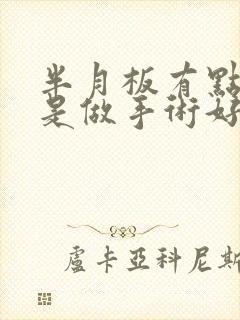 半月板有點
是做手術好
盧卡亞科尼斯